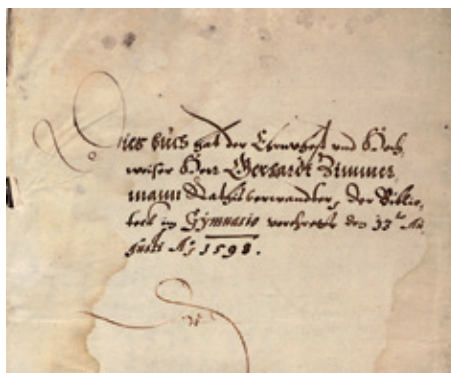 Dies buch hat der Ehrnvhest vnd Hoch
weiser Herr Gerhardt Zimmer,
mann Rathsverwandter, der Biblio,
teck im Gÿmnasio verehrett den Au,
gusti Aº 1598.